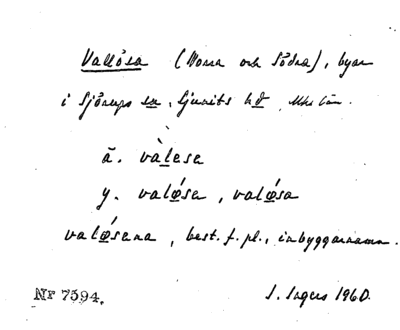 Vallösa (Norra och Södra), byar
i Sjörups sn, Ljunits hd, Mhs län.
ä. vàlesa
y. valǿsa, valǿsa
valǿsana, best. f. pl., inbyggarnamn.
Nr 7594. I. Ingers 1960.